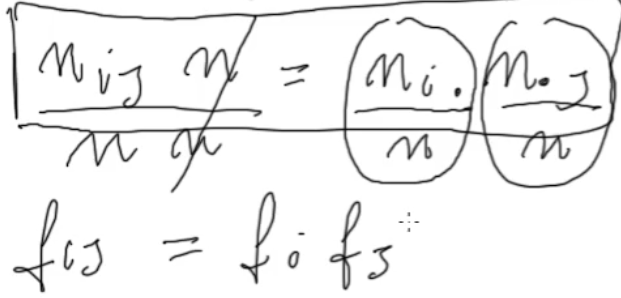 n_{ij} n / n n = n_{i.} / n n_{.j} / n
f_{ij} = f_i f_j